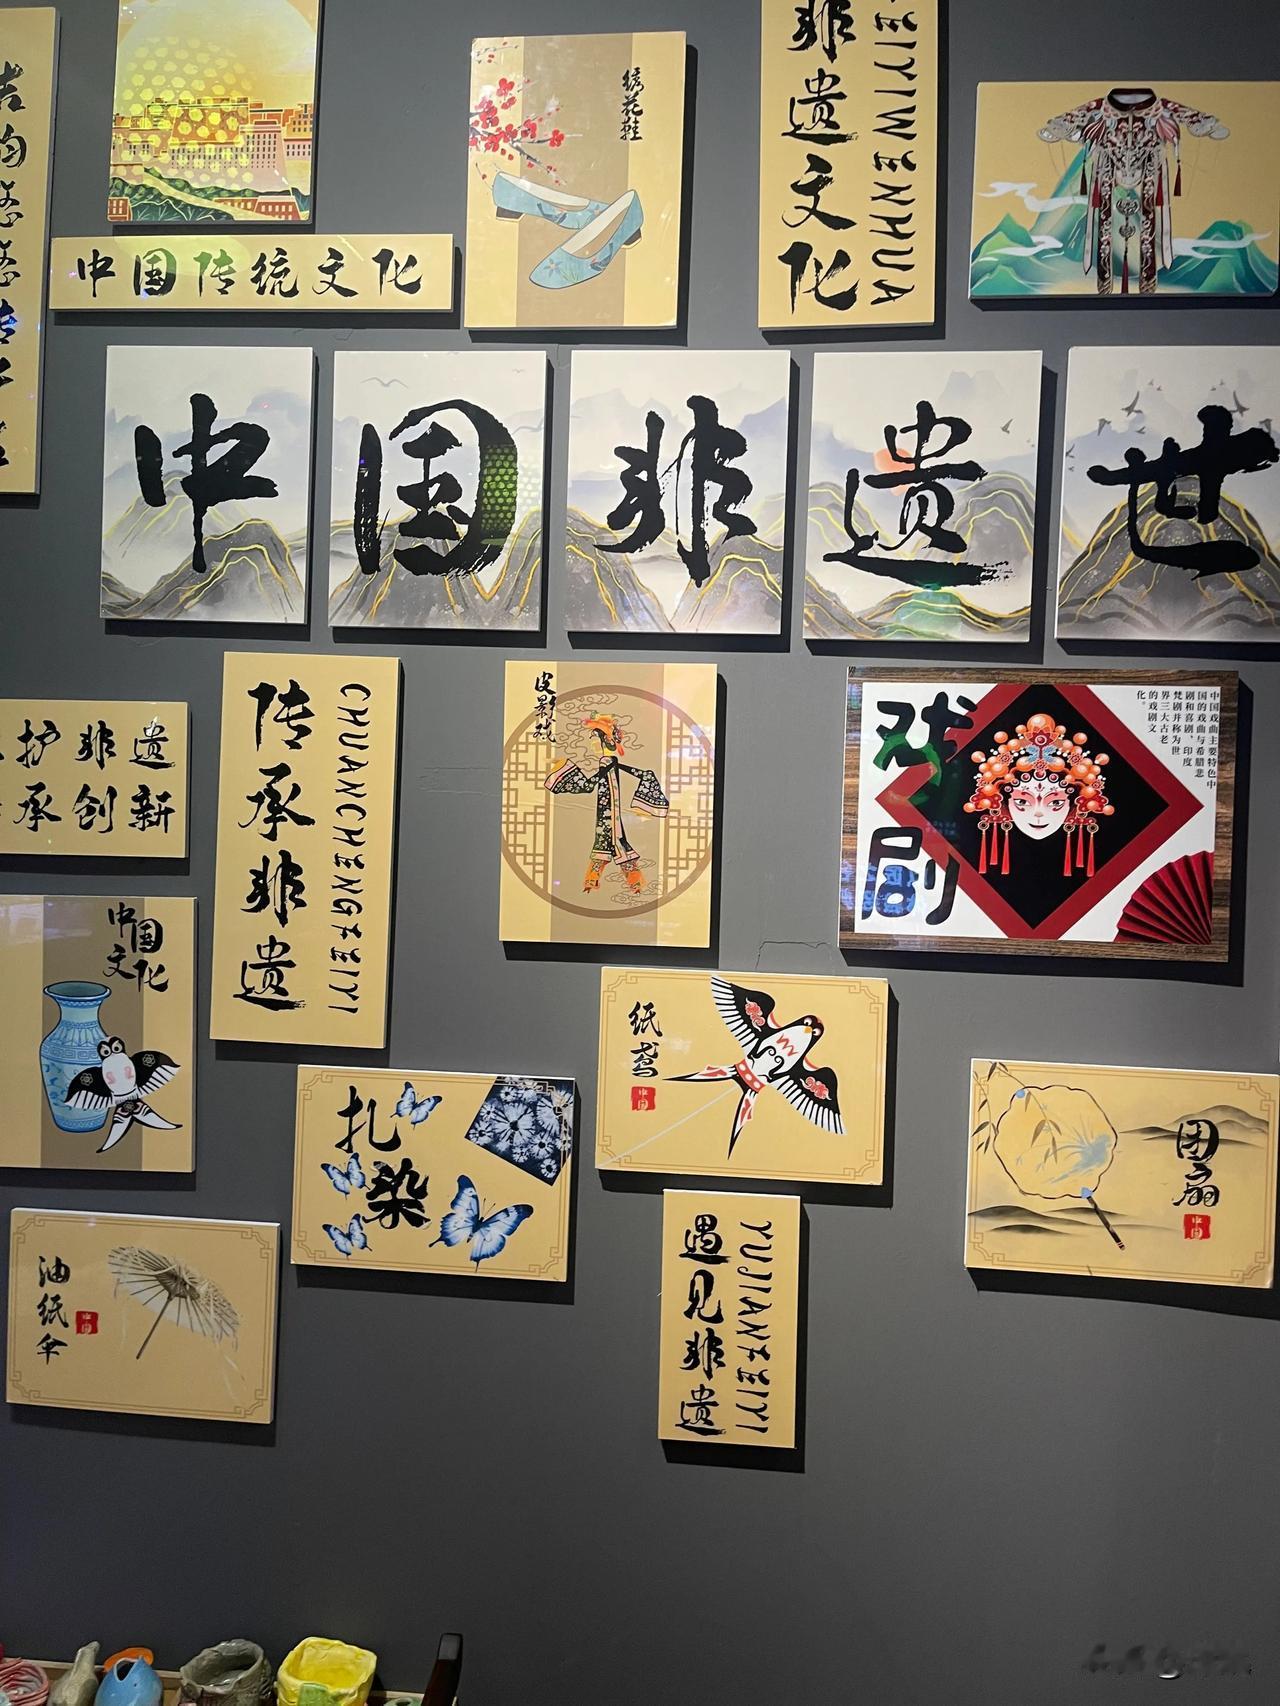 中国传统文化
绣花鞋
非遗文化
FEIYIWENHUA
中国非遗世
护非遗
承创新
传承非遗
CHUANCHENGFEIYI
皮影戏
戏剧
中国戏曲主要特色中
国的戏曲与希腊悲
剧和喜剧、印度
梵剧并称为世
界三大古老
的戏剧文
化。
中国
文化
纸鸢
中国
扎染
团扇
中国
油纸伞
中国
遇见非遗
YUJIANFEIYI